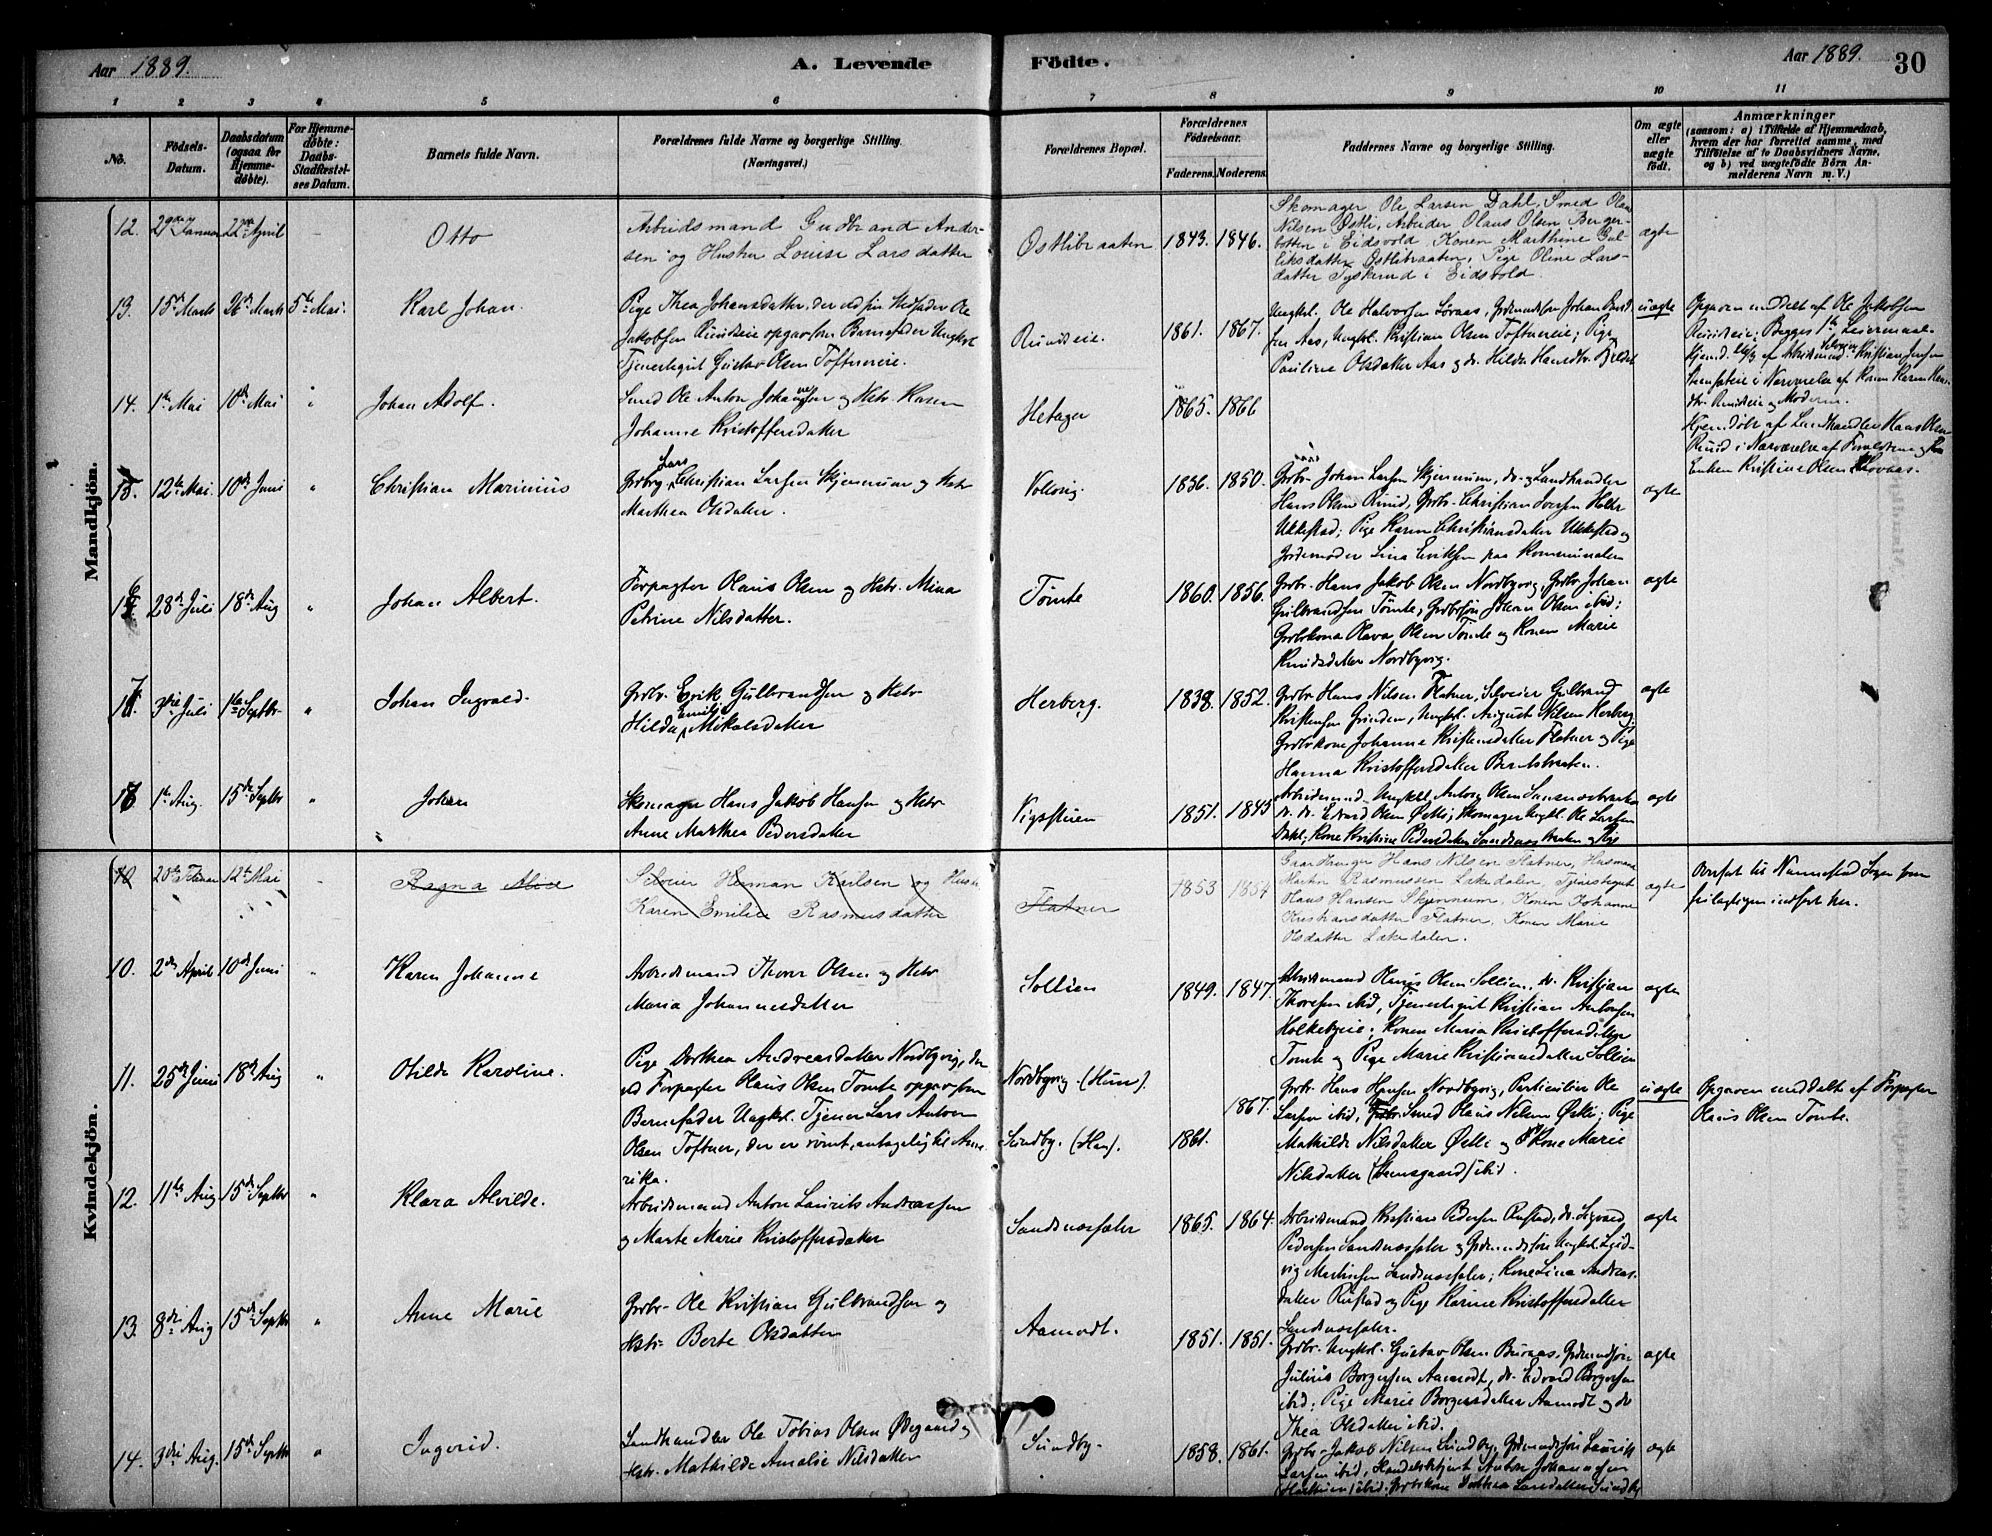 Aar 1889. A. Levende Fødte. Aar 1889. 30
1 2 3 4 5 6 7 8 9 10 11
No.
Fødsels-Datum.
Daabsdatum (ogsaa for Hjemme-døbte).
For Hjemme-døbte: Daabs-Stadfæstel-ses Datum.
Barnets fulde Navn.
Forældrenes fulde Navne og borgerlige Stilling. (Næringsvei.)
Forældrenes Bopæl.
Forældrenes Fødselsaar.
Faderens. Moderens.
Faddernes Navne og borgerlige Stilling.
Om ægte eller uægte født.
Anmærkninger
(saasom: a) i Tilfælde af Hjemmedaab,
hvem der har forrettet samme, med
Tilføielse af to Daabsvidners Navne,
og b) ved uægtefødte Børn An-
melderens Navn m. V.)
Mandkjøn.
12. 29de Januar 22de April Otto
Arbeidsmand Gudbrand Ander-
sen og Hustru Louise Larsdatter
Østlibraaten 1843. 1846.
Skomager Ole Larsen Dahl, Smed Olaus
Nilsen Østli, Arbeider Olaus Olsen Berger-
botten i Eidsvold, Konen Marthine Gul-
liksdatter Østlibraaten, Pige Oline Lars-
datter Tyskerud i Eidsvold.
ægte
13. 15de Marts 26de Marts 5te Mai. Karl Johan.
Pige Thea Johansdatter, der ved sin Stedfader Ole
Jakobsen Rundeie opgav som Barnefader Ungkl.
Tjenestegut Gustav Olsen Toftnereie.
Rundeie. 1861. 1867.
Ungkl. Ole Halvorsen Loraas, Grdmandssøn Johan
sen Aas, Ungkl. Kristian Olsen Toftnereie; Pige
Pauline Olsdatter Aas og do. Hilda Hansdtr.
uægte
Opgaven meddelt af Ole Jakobsen
Rundeie; Begges 1te Leiermaal.
Hjemd. af Arbeidsmand Kristian Jensen
i Nærværelse af Konen Karen Han-
dtr. Rundeie og Moderen.
14. 1te Mai 10de Mai Johan Adolf.
Smed Ole Anton Johannessen og Hstr. Karen
Johanne Kristoffersdatter
Hetager 1865. 1866
Hjemdøbt af Landhandler Hans Olsen
Rund i Nærværelse af Forældrene og
Enken Kristine Olsen
15. 12te Mai. 10de Juni Christian Marinius
Grdbr. Lars Christian Larsen Skjennum og Hstr.
Marthea Olsdatter.
Volkvig. 1856. 1850.
Grdbr. Johan Larsen Skjennum, do. og Landhandler
Hans Olsen Rund, Grdbr. Christian Iversen Holter
Ukkestad; Pige Karen Christiansdatter Ukkestad og
Jordemoder Lina Eriksen paa Kommunalen
ægte
16. 28de Juli 18de Aug Johan Albert.
Forpagter Olaus Olsen og Hstr. Mina
Petrine Nilsdatter.
Tømte 1860. 1856.
Grdbr. Hans Jakob Olsen Nordbyvig, Grdbr. Johan
Gulbrandsen Tømte, Grdbrsøn Johan Olsen ibid;
Grdbrkona Olava Olsen Tømte og Konen Marie
Knudsdatter Nordbyvig.
ægte
17. 3die Juli 1te Septbr. Johan Ingvald.
Grdbr. Erik Gulbrandsen og Hstr.
Hilda Emilie Mikalsdatter
Herberg. 1838. 1852.
Grdbr. Hans Nilsen Flatner, Selveier Gulbrand
Kristensen Grinden, Ungkl. August Nilsen Herberg;
Grdbrkone Johanne Kristensdatter Flatner og Pige
Hanna Kristoffersdatter Berntsbraaten.
ægte
18 1te Aug. 15de Septbr Johan
Skomager Hans Jakob Hansen og Hstr
Anne Marthea Pedersdatter
Vigsstuen 1851. 1845
Arbeidsmand Ungkl. Anton Olsen Sandnæsbraaten
do. do. Edvard Olsen Østli; Skomager Ungkl. Ole Larsen
Dahl; Kone Kristine Pedersdatter Sandnæsbraaten og Pige
ægte
Kvindekjøn.
10 20de Februar 12te Mai Ragna Alvie
Selveier Herman Karlsen og Hustru
Karen Emilie Rasmusdatter
Flatner 1853 1854
Gaardbruger Hans Nilsen Flatner, Husmand
Martin Rasmussen Lækedalen, Tjenestegut
Hans Hansen Skjennum, Konen Johanne
Kristiansdatter Flatner, Konen Marie
Olsdatter Lækedalen.
ægte
Overført til Nannestad Sogn som
feilagtigen indført her.
10. 2den April 10de Juni Karen Johanne
Arbeidsmand Thorer Olsen og Hstr
Maria Johannesdatter
Sollien 1849. 1847.
Arbeidsmand Olaus Olsen Sollien, do. Kristian
Thoresen ibid, Tjenestegut Kristian Antonsen
Holkebyeie; Konen Maria Kristoffersdatter
Tømte og Pige Marie Kristiansdatter Sollien
ægte
11. 25de Juni 18de Aug Otilde Karoline.
Pige Dorthea Andreasdatter Nordbyvig, der
ved Forpagter Olaus Olsen Tømte opgav som
Barnefader Ungkl. Tjener Lars Anton
Olsen Toftner, der er rømt, antagelig til Ame-
rika.
Nordbyvig. (Hun). Sundby. (Han). 1861. 1867.
Grdbr. Hans Hansen Nordbyvig, Particulier Ole
Larsen ibid, Smed Olaus Nilsen Østli; Pige
Mathilde Nilsdatter Østli og Kone Marie
Nilsdatter (Stensgaard) ibid.
uægte
Opgaven meddelt af Forpagter
Olaus Olsen Tømte.
12. 11te Aug 15de Septbr Klara Alvilde.
Arbeidsmand Anton Laurits Andreassen
og Marte Marie Kristoffersdatter
Sandnæsfaler 1865. 1864.
Arbeidsmand Kristian Pedersen Rustad, do. Sigvard
Pedersen Sandnæsfaler og Grdmandssøn Ungkl. Lud-
vig Mathisen Sandnæsfaler; Kone Lina Andreas-
datter Rustad og Pige Karine Kristoffersdatter
Sandnæsfaler.
ægte
13. 8de Aug 15de Septbr Anne Marie
Grdbr. Ole Kristian Gulbrandsen og
Hstr. Berte Olsdatter
Aamodt. 1851. 1851.
Grdbr. Ungkl. Gustav Olsen Buraas, Grdmandssøn
Julius Borgersen Aamodt, do. Edvard Borgersen
ibid; Pige Marie Borgersdatter Aamodt og do
Thea Olsdatter ibid.
ægte
14. 3die Aug. 15de Septbr Ingerid.
Landhandler Ole Tobias Olsen Ødegaard og
Hstr. Mathilde Amalie Nilsdatter
Sundby. 1858. 1861.
Grdbr. Jakob Nilsen Sundby, Grdmandssøn Laurits
Larsen ibid, Handelsbetjent Anton Johannessen
ibid; Grdbrkone Dorthea Larsdatter Sundby
ægte